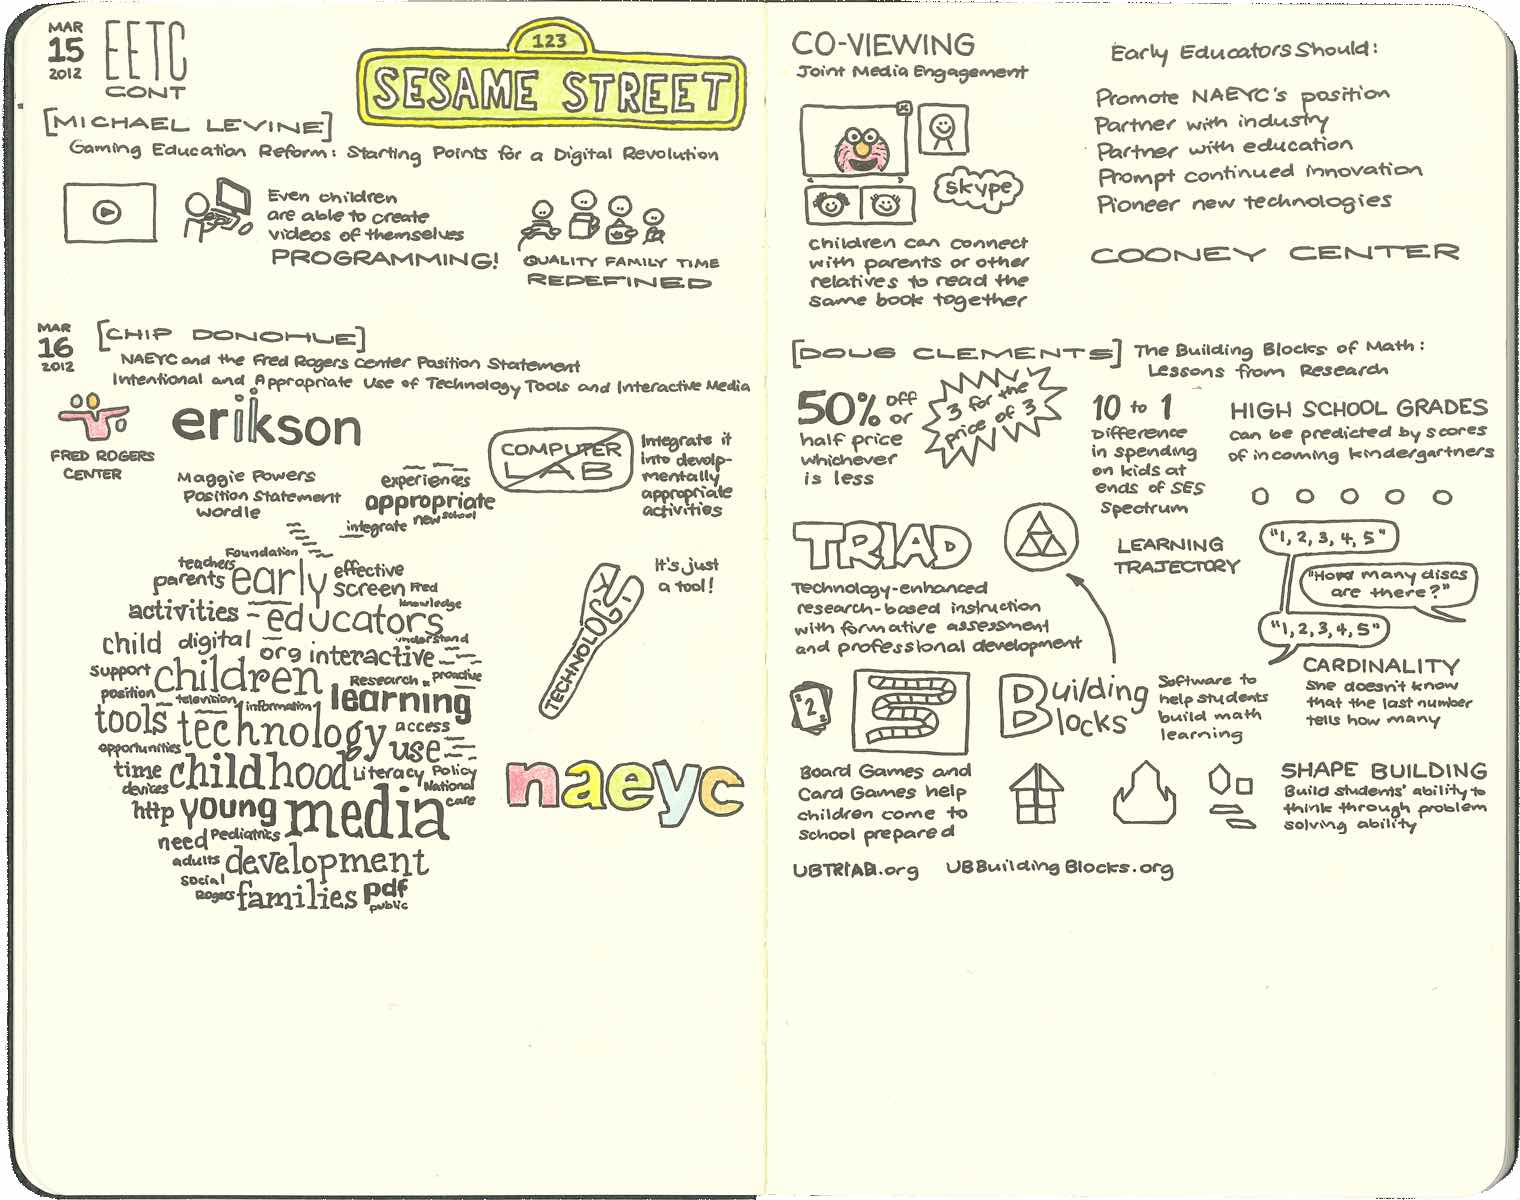 MAR
15
2012
EETC
CONT
123
SESAME STREET
[MICHAEL LEVINE]
Gaming Education Reform: Starting Points for a Digital Revolution
Even children
are able to create
videos of themselves
PROGRAMMING!
QUALITY FAMILY TIME
REDEFINED
MAR
16
2012
[CHIP DONOHUE]
NAEYC and the Fred Rogers Center Position Statement
Intentional and Appropriate Use of Technology Tools and Interactive Media
FRED ROGERS
CENTER
erikson
Maggie Powers
Position Statement
Wordle
COMPUTER
LAB
Integrate it
into devolp-
mentally
appropriate
activities
experiences
appropriate
integrate new school
Foundation
teachers
parents early effective
screen Fred
activities educators knowledge
child digital understand
org interactive
support children Research proactive
position television information learning
tools technology access
opportunities use
time childhood Literacy Policy
devices National
http young media care
need Pediatrics
adults development
social
Rogers families pdf
public
It's just
a tool!
TECHNOLOGY
naeyc
CO-VIEWING
Joint Media Engagement
skype
children can connect
with parents or other
relatives to read the
same book together
Early Educators Should:
Promote NAEYC's position
Partner with industry
Partner with education
Prompt continued innovation
Pioneer new technologies
COONEY CENTER
[DOUG CLEMENTS] The Building Blocks of Math:
Lessons from Research
50% off
or
half price
whichever
is less
3 for the
price of 3
10 to 1
Difference
in spending
on kids at
ends of SES
Spectrum
HIGH SCHOOL GRADES
can be predicted by scores
of incoming kindergartners
TRIAD
Technology-enhanced
research-based instruction
with formative assessment
and professional development
LEARNING
TRAJECTORY
"1, 2, 3, 4, 5"
"How many discs
are there?"
"1, 2, 3, 4, 5"
CARDINALITY
She doesn't know
that the last number
tells how many
2
Building
Blocks
Software to
help students
build math
learning
Board Games and
Card Games help
children come to
school prepared
SHAPE BUILDING
Build students' ability to
think through problem
solving ability
UBTRIAD.org UBBuildingBlocks.org